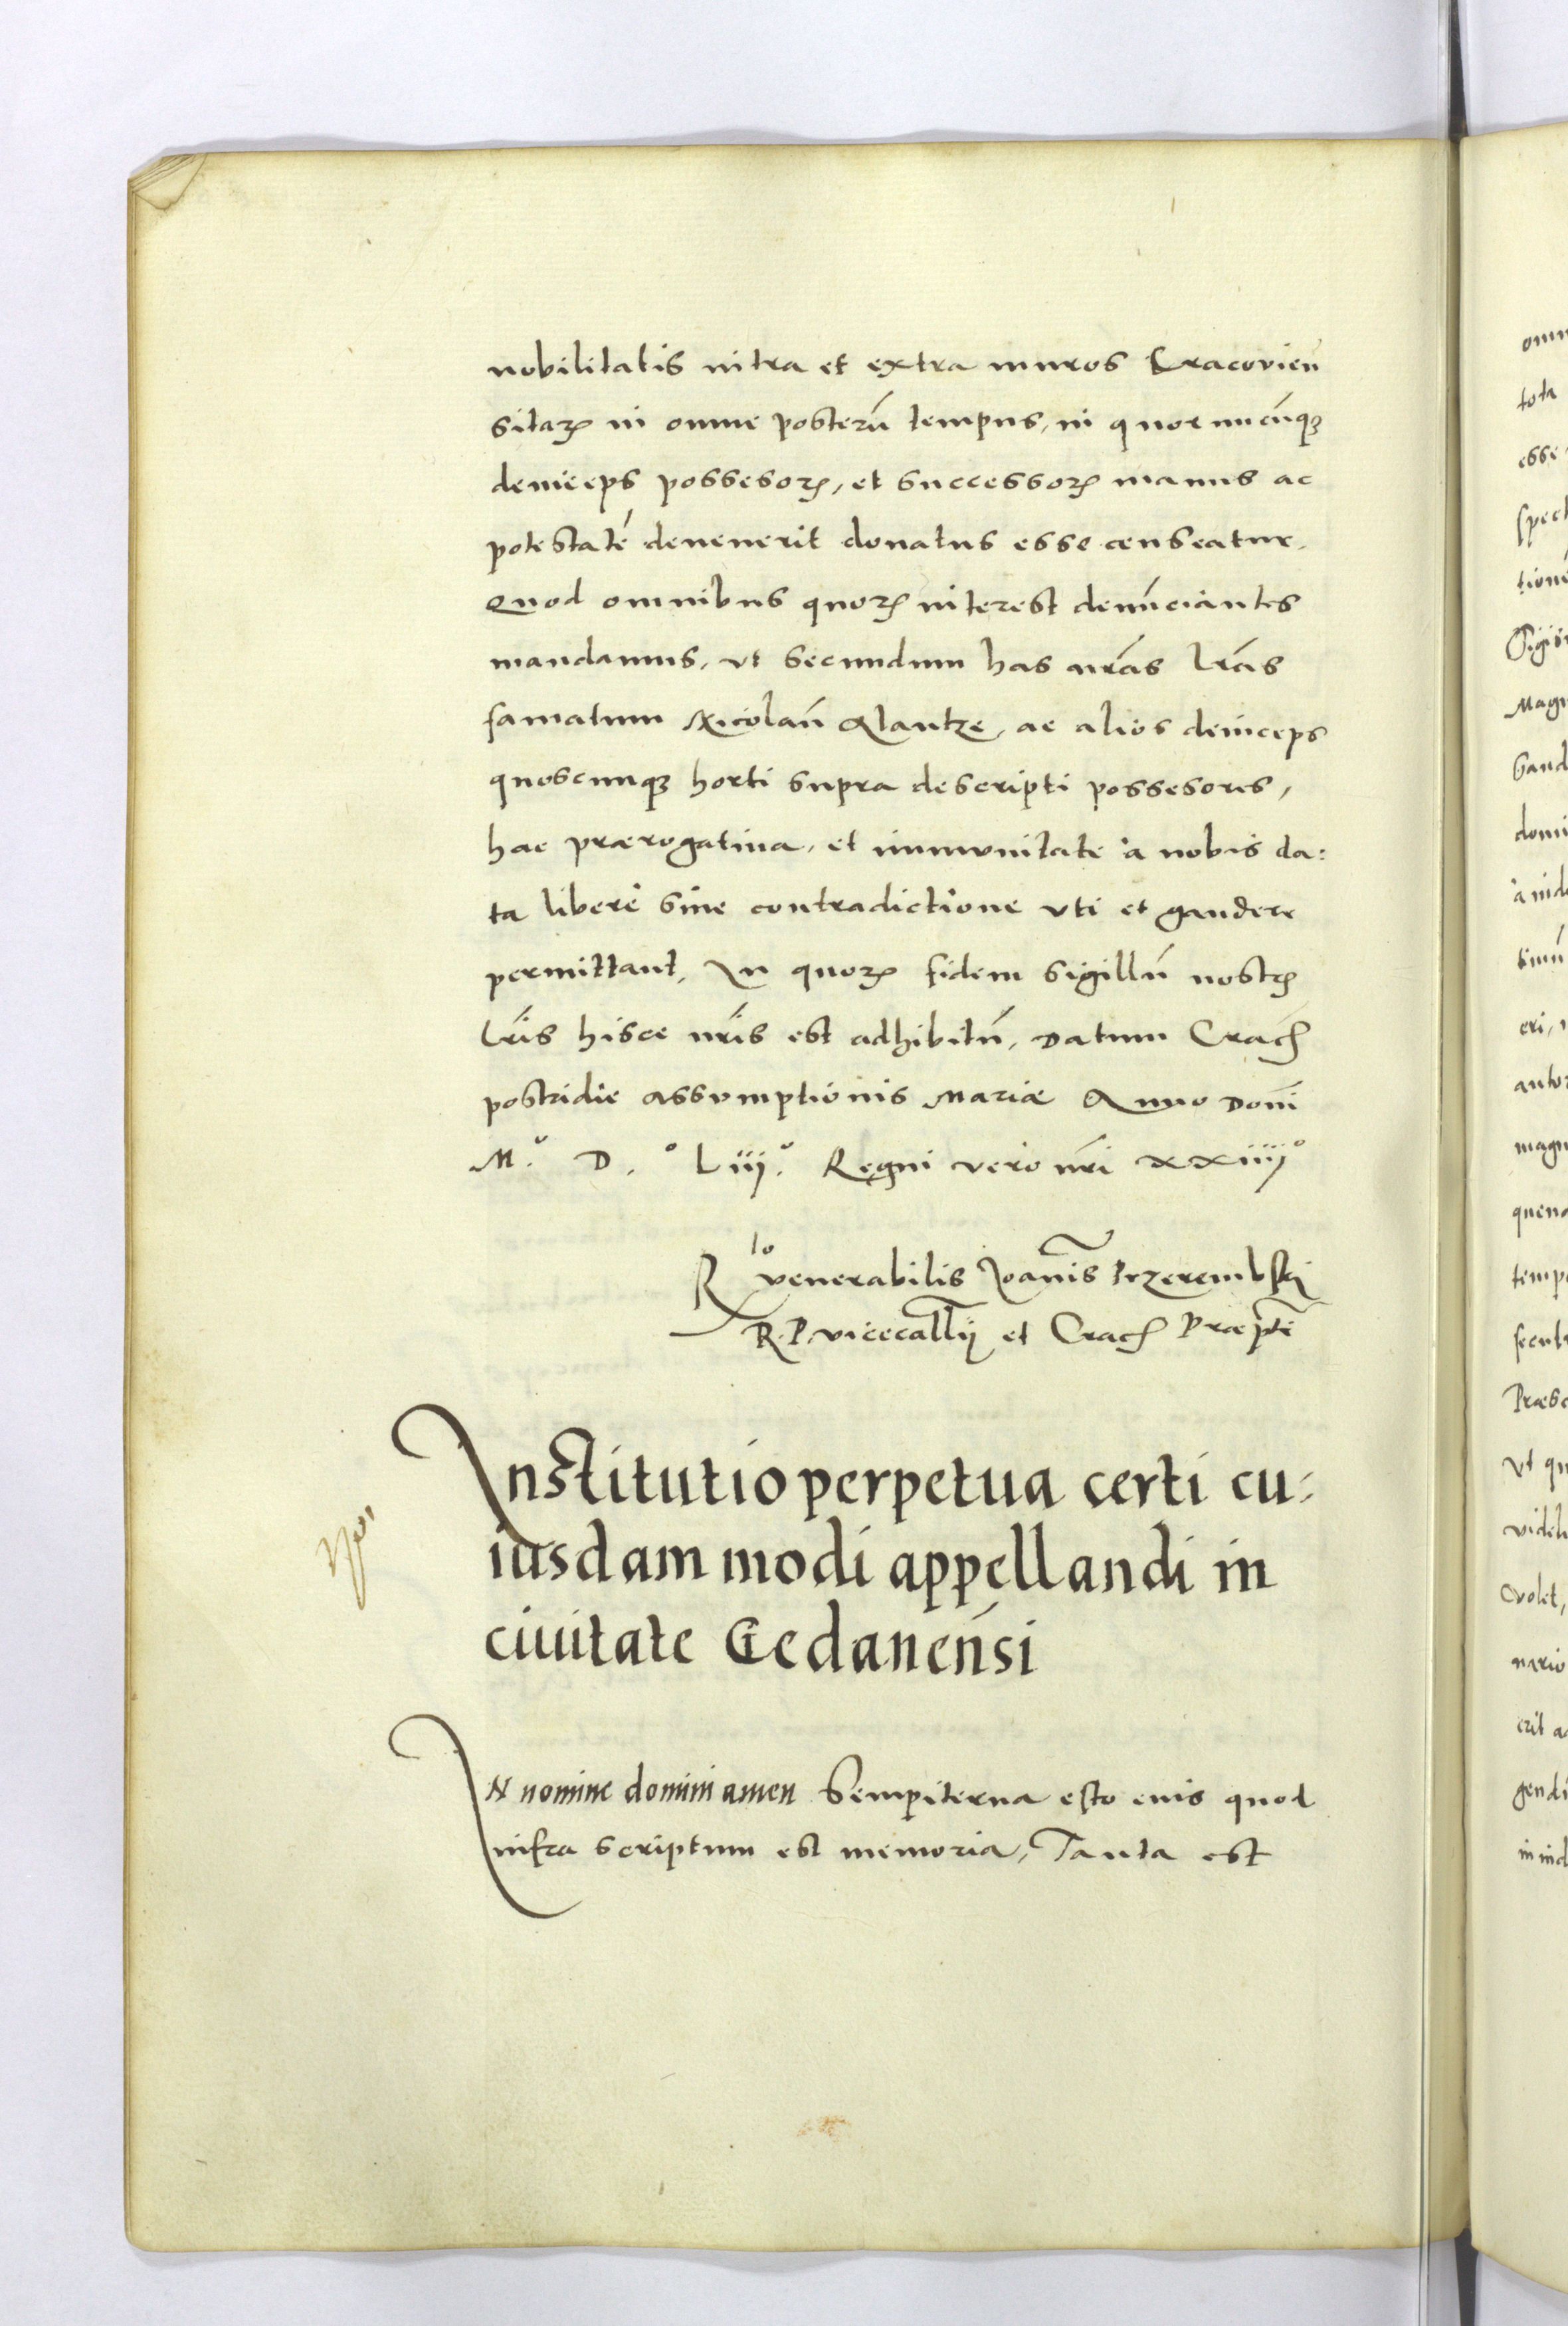 nobilitatis intra et extra muros Cracovień
sitarꝝ in omne posterú tempus, in quorumcúqꝫ
deinceps possesorꝝ, et successorꝝ manus ac
potestaté devenerit donatus esse censeatur.
Quod omnibus quorꝝ interest denúciantes
mandamus, vt secundum has nrás lrás
famatum Nicolaú Glantze, ac alios deinceps
quoscumqꝫ horti supra descripti possesores,
hac prærogatiua, et immvnitate à nobis da:
ta liberè sine contradictione vti et gaudere
permittant, In quorꝝ fidem sigillú nostrꝝ
Lrís hisce nrís est adhibitú, Datum Crać
postridie assvmptionis Mariæ Anno Doni
M.º D.º Liij.º Regni vero nrí xxiiijº
Rlo venerabilis Joanis Przerembski
R. P. vicecallij et Crać Præpti
Institutio perpetua certi cu:
iusdam modi appellandi in
ciuitate Gedanensi
IN nomine domini amen Sempiterna esto euis quod
infra scriptum est memoria, Tanta est
omn
tota
esse
spect
tioné
Sigis
Magn
Gand
domi
à iud
simú
eri,
autor
magn
quend
temp
secul
Præsc
Vt qu
videli
Volet,
nario
erit a
gendi
in iud